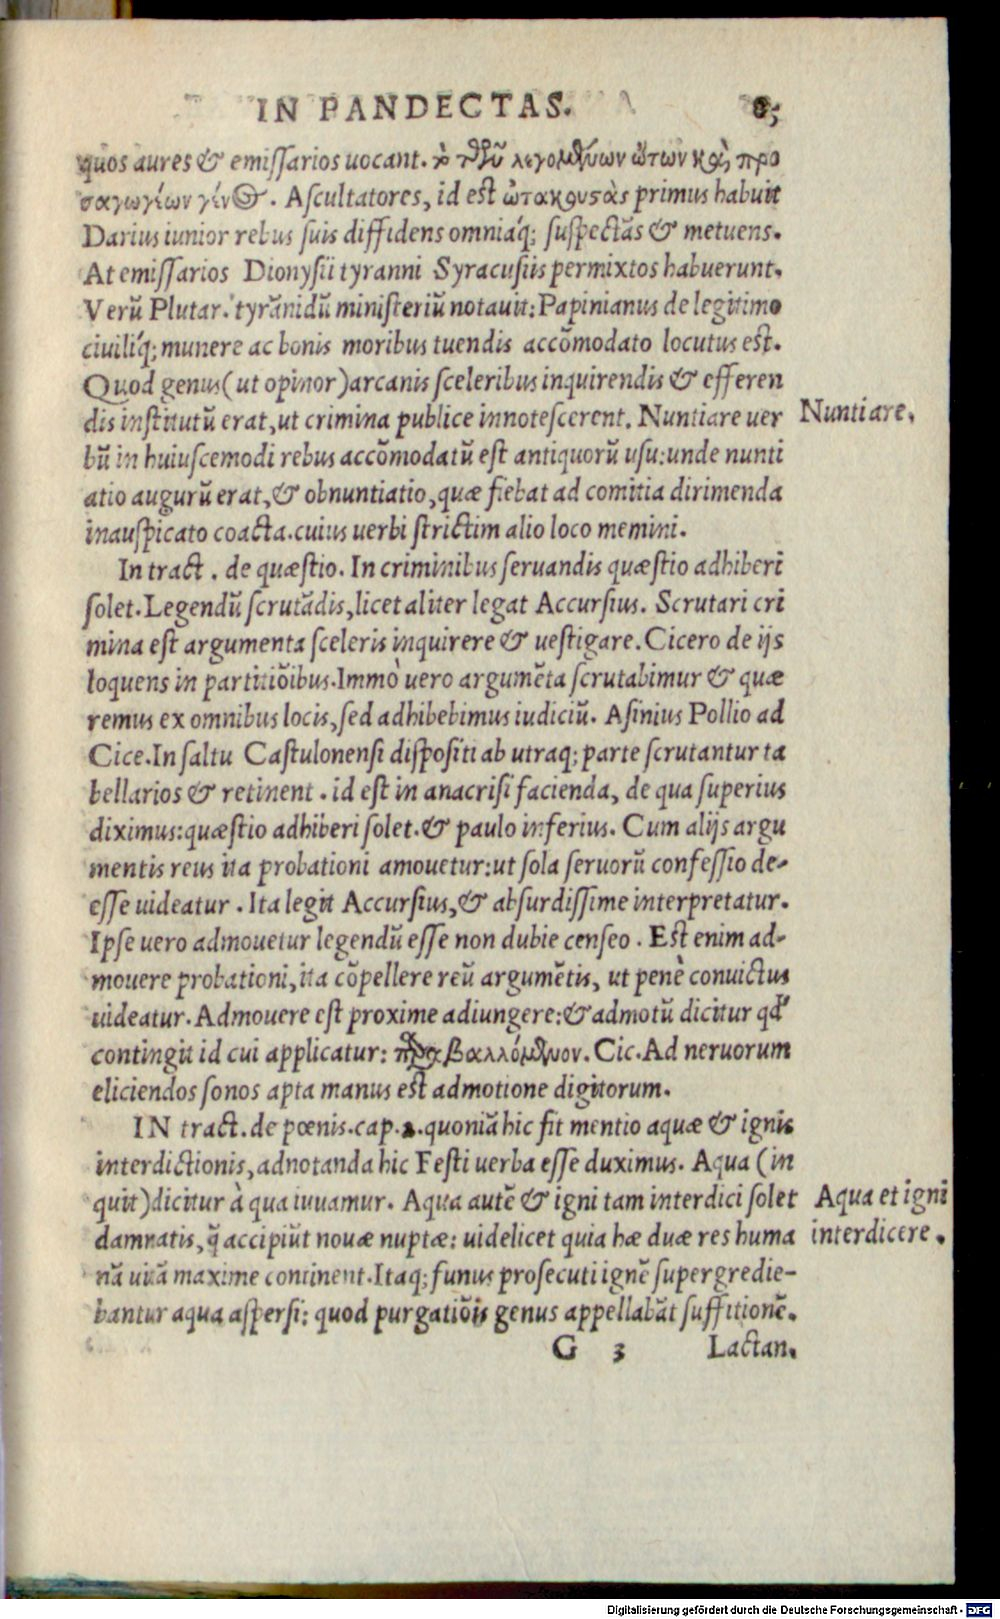 IN PANDECTAS. 85
quos aures & emissarios uocant. τὸ τῶν λεγομένων ὤτων καὶ προ
σαγωγίων γένος. Ascultatores, id est ὠτακουστὰς primus habuit
Darius iunior rebus suis diffidens omniáq; suspectãs & metuens.
At emissarios Dionysii tyranni Syracusiis permixtos habuerunt.
Verũ Plutar. tyrãnidũ ministeriũ notauit: Papinianus de legitimo
ciuiliq́; munere ac bonis moribus tuendis accõmodato locutus est.
Quod genus (ut opinor) arcanis sceleribus inquirendis & efferen
dis institutũ erat, ut crimina publice innotescerent. Nuntiare uer
Nuntiare.
bũ in huiuscemodi rebus accõmodatũ est antiquorũ usu: unde nunti
atio augurũ erat, & obnuntiatio, quæ fiebat ad comitia dirimenda
inauspicato coacta. cuius uerbi strictim alio loco memini.
In tract. de quæstio. In criminibus seruandis quæstio adhiberi
solet. Legendũ scrutãdis, licet aliter legat Accursius. Scrutari cri
mina est argumenta sceleris inquirere & uestigare. Cicero de ijs
loquens in partitiõibus. Immò uero argumẽta scrutabimur & quæ
remus ex omnibus locis, sed adhibebimus iudiciũ. Asinius Pollio ad
Cice. In saltu Castulonensi dispositi ab utraq; parte scrutantur ta
bellarios & retinent. id est in anacrisi facienda, de qua superius
diximus: quæstio adhiberi solet. & paulo inferius. Cum alijs argu
mentis reus ita probationi amouetur: ut sola seruorũ confessio de-
esse uideatur. Ita legit Accursius, & absurdissime interpretatur.
Ipse uero admouetur legendũ esse non dubie censeo. Est enim ad-
mouere probationi, ita cõpellere reũ argumẽtis, ut penè conuictus
uideatur. Admouere est proxime adiungere: & admotũ dicitur qd'
contingit id cui applicatur: παραβαλλόμενον. Cic. Ad neruorum
eliciendos sonos apta manus est admotione digitorum.
IN tract. de pœnis. cap. 2. quoniã hic fit mentio aquæ & ignis
interdictionis, adnotanda hic Festi uerba esse duximus. Aqua (in
quit) dicitur à qua iuuamur. Aqua autẽ & igni tam interdici solet
Aqua et igni
damnatis, q̃ accipiũt nouæ nuptæ: uidelicet quia hæ duæ res huma
interdicere.
nã uitã maxime continent. Itaq; funus prosecuti ignẽ supergredie-
bantur aqua aspersi: quod purgatiõis genus appellabãt suffitionẽ.
G 3 Lactan.
Digitalisierung gefördert durch die Deutsche Forschungsgemeinschaft - DFG